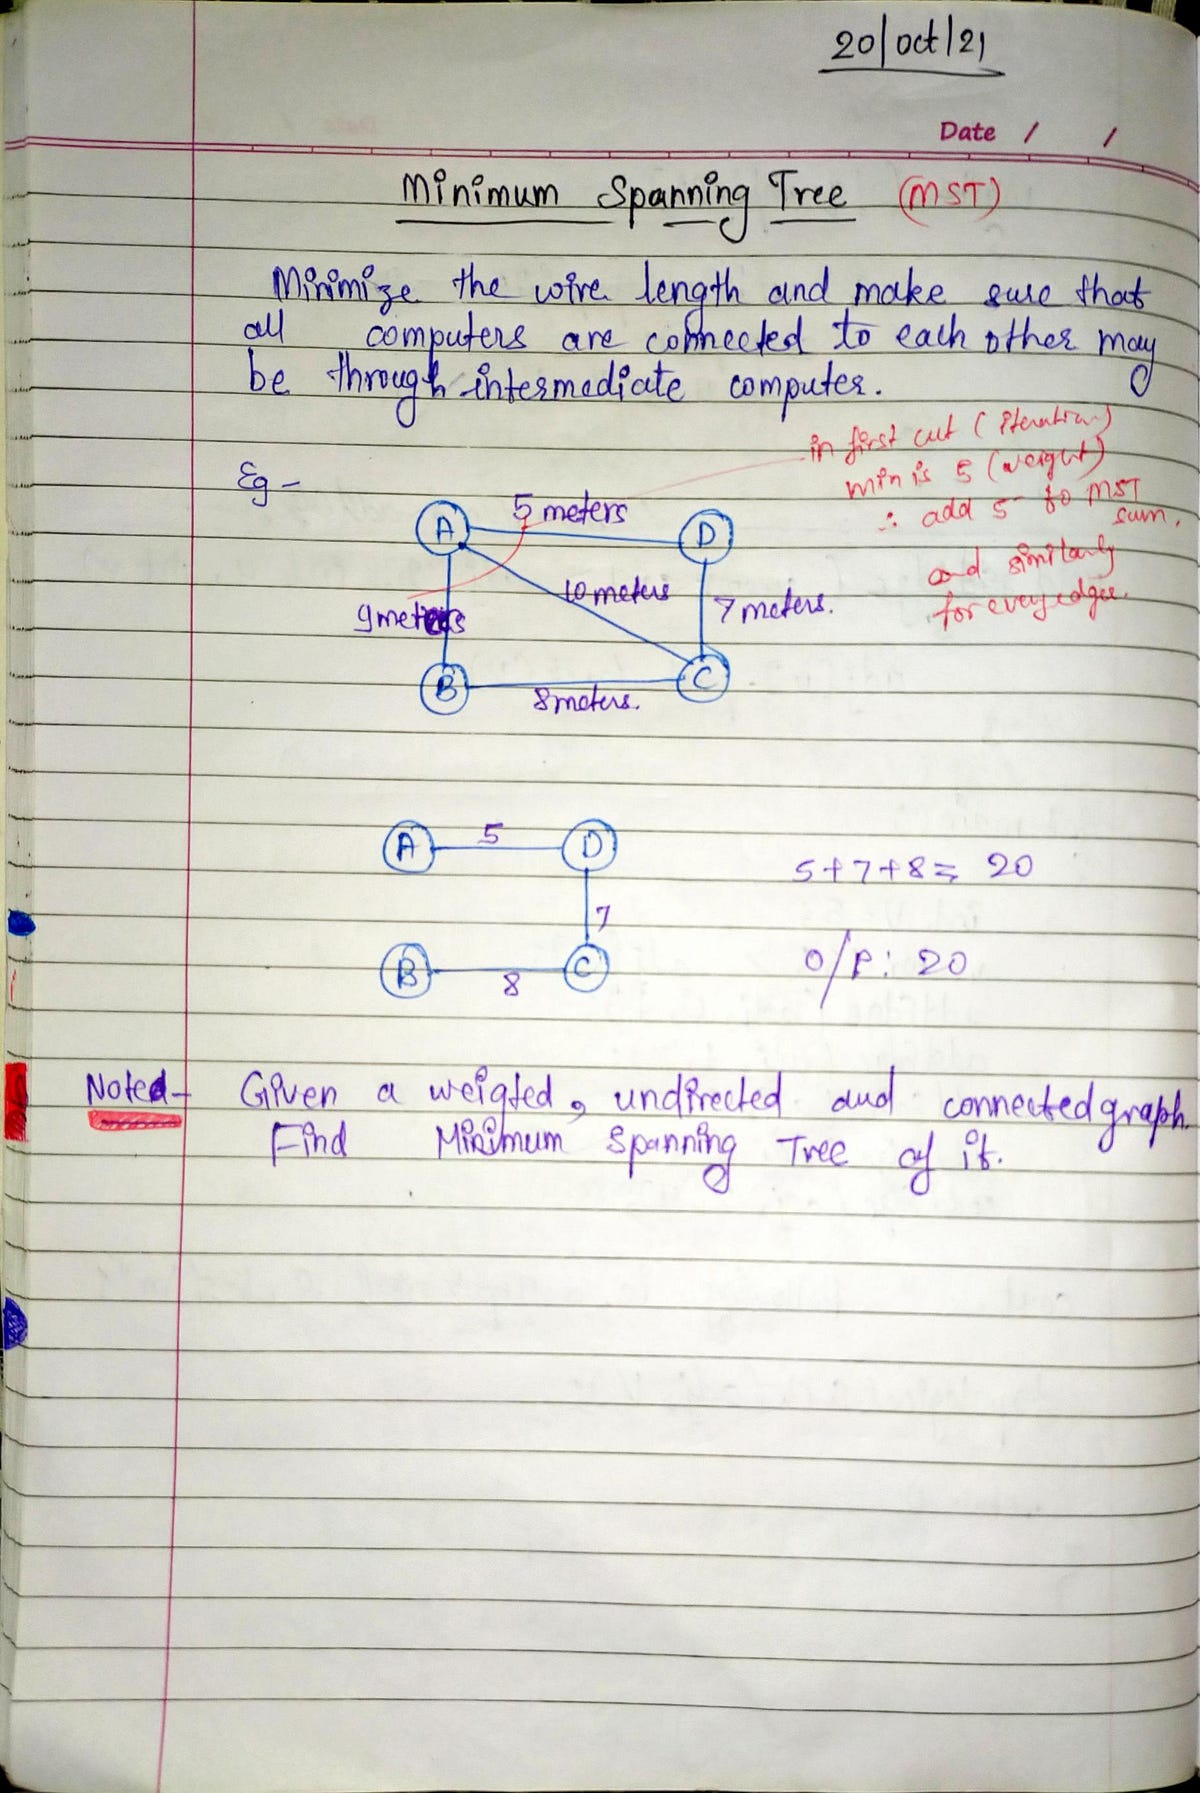 20/oct/21
Date / /
Minimum Spanning Tree (MST)
Minimize the wire length and make sure that
all computers are connected to each other may
be through intermediate computer.
in first cut (iteration)
min is 5 (weight)
∴ add 5 to MST
sum.
and similarly
for every edges.
Eg -
A 5 meters D
10 meters
9 meters
7 meters.
B 8 meters. C
A 5 D
5+7+8 = 20
7
B 8 C
O/P: 20
Noted - Given a weigted, undirected and connected graph.
Find Minimum Spanning Tree of it.